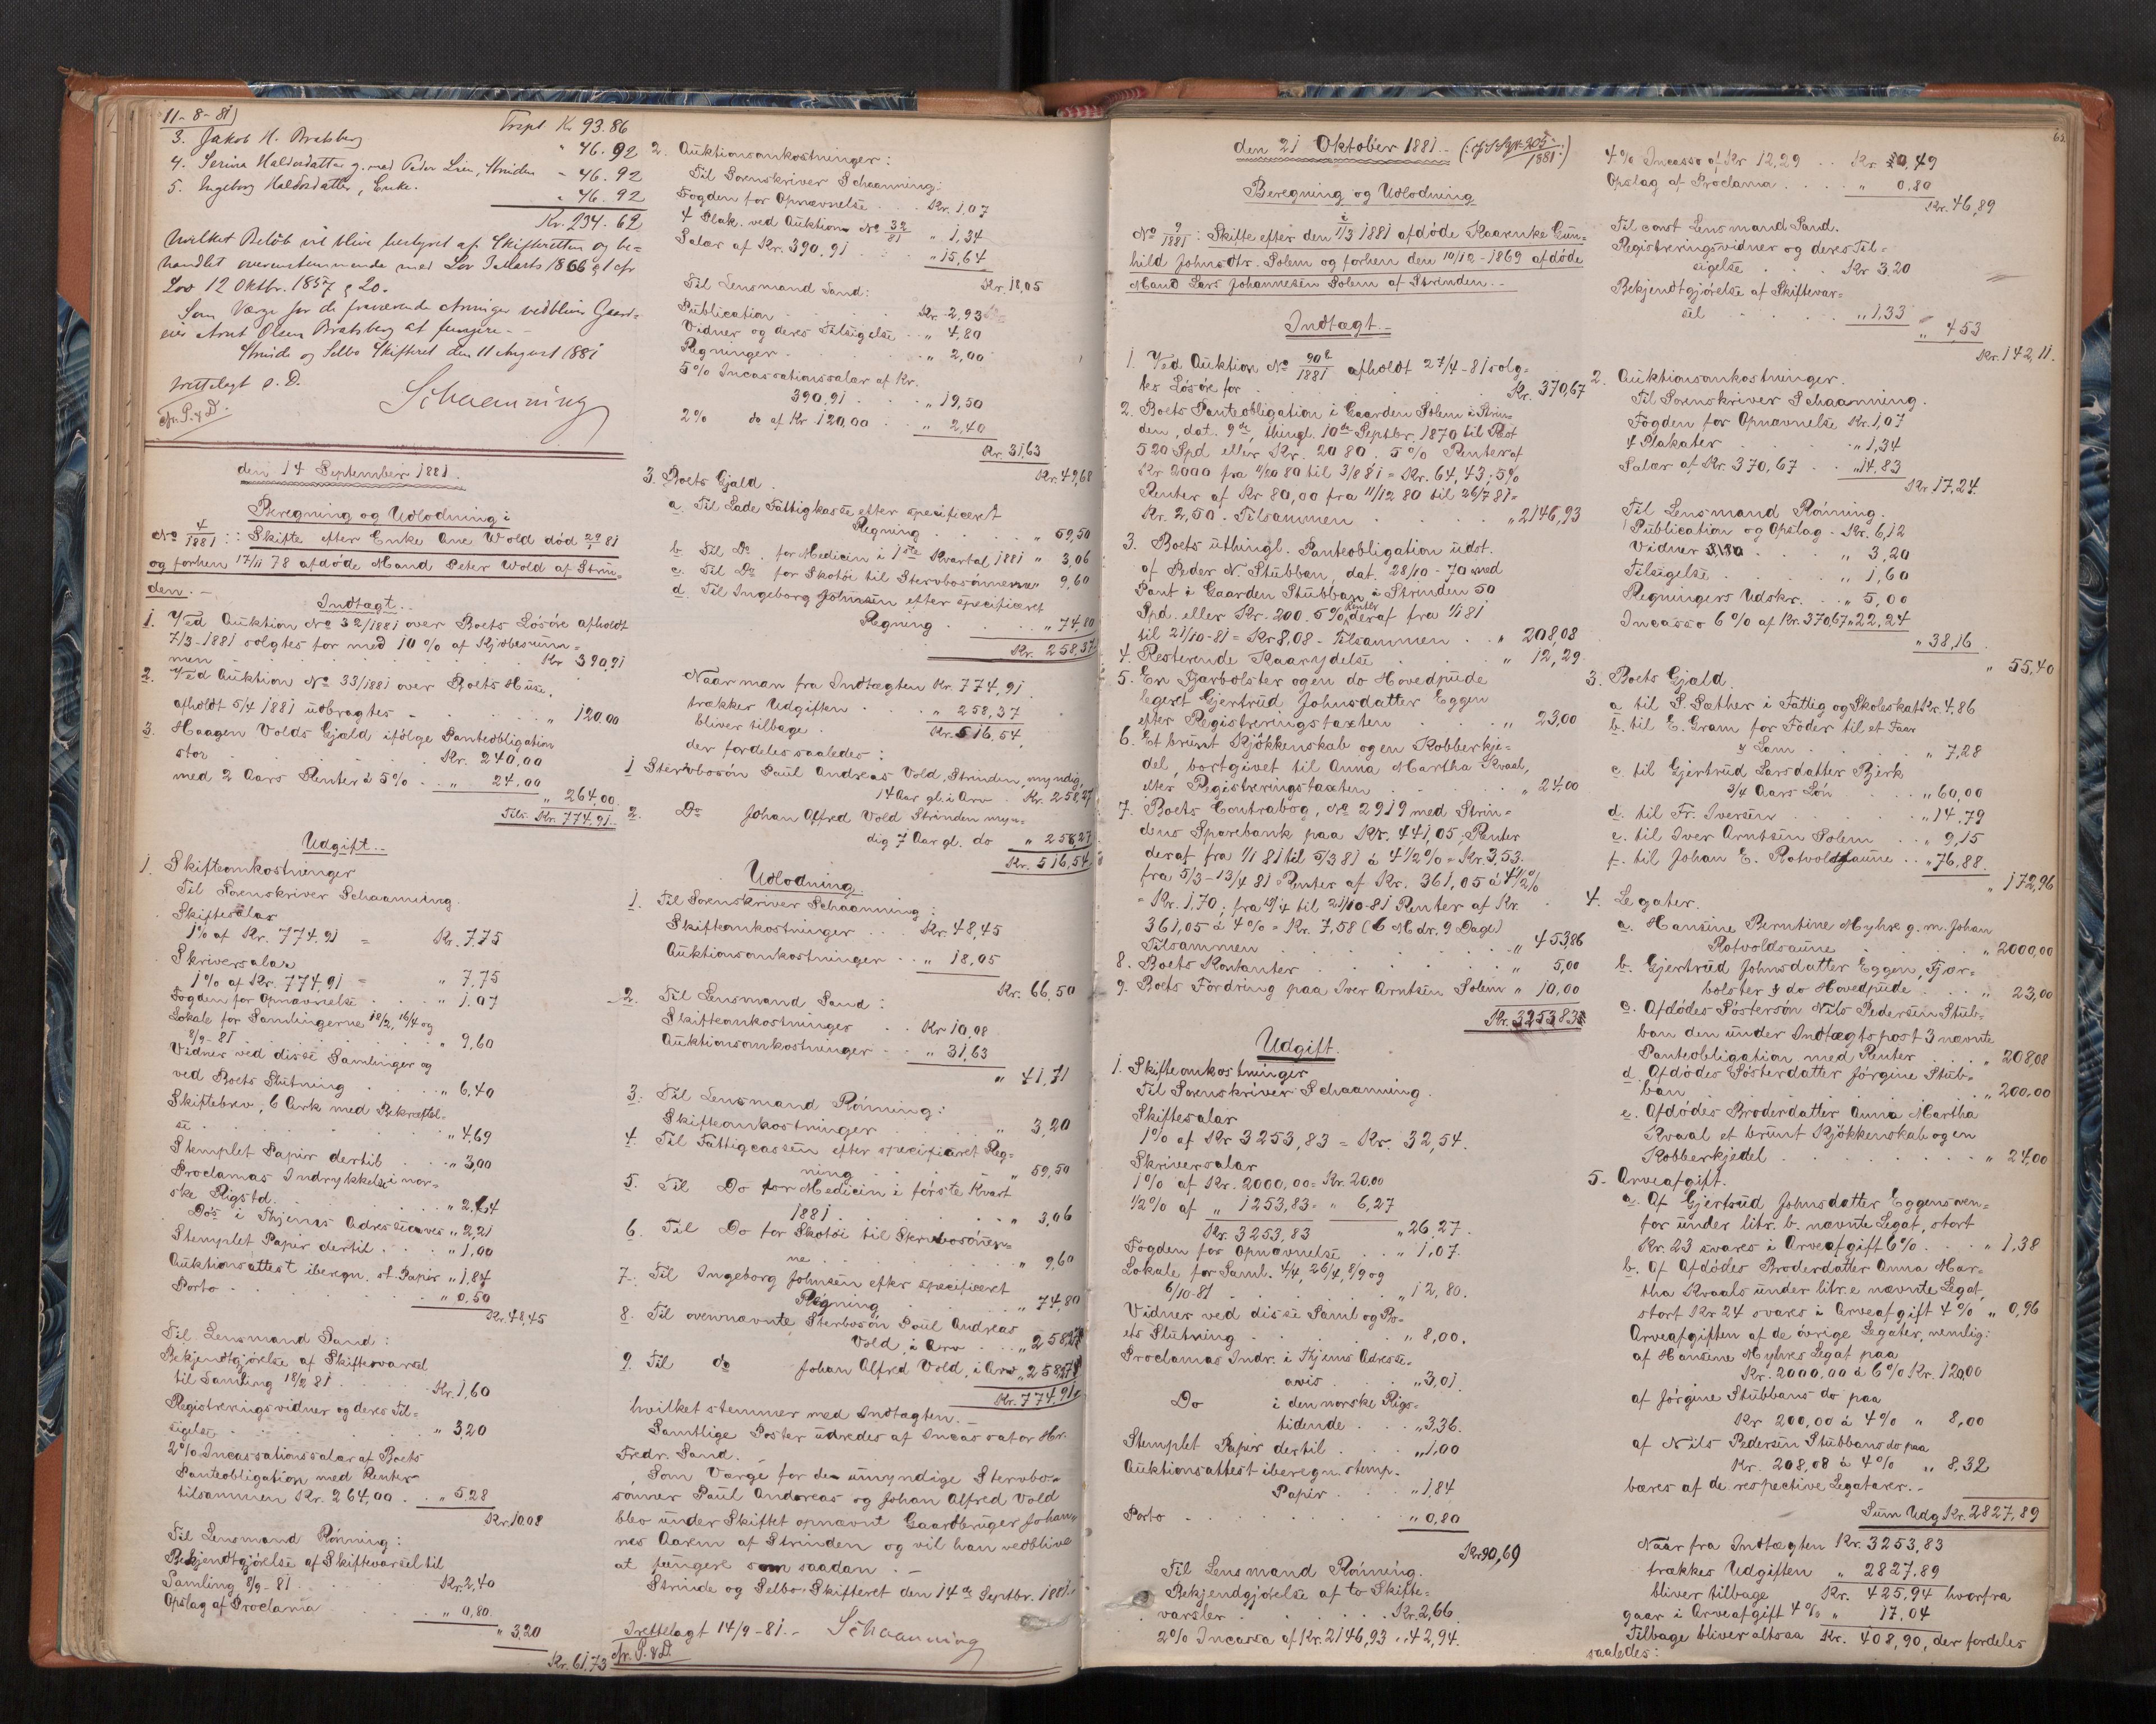 11-8-81)
Trspt Kr. 93.86
3. Jakob H. Bratsberg " 46.92
4. Serina Haldosdatter g. med Peder Lien, Strinden " 46.92
5. Ingeborg Haldosdatter, Enke. " 46.92
Kr. 234.62
hvilket Beløb vil blive bestyret af Skifteretten og be=
handlet overensstemmende med Lov 3 Marts 1866 § 1 cfr
Lov 12 Oktbr. 1857 § 20.
Som Værge for de fraværende Arvinger vedbliver Gaard=
eier Arnt Olsen Bratsberg at fungere. -
Strinde og Selbo Skifteret den 11 August 1881
Irettelagt s. D.
Schaanning
cfr. P. & D.
den 14 September 1881.
Beregning og Udlodning i
No 4/1881: Skifte efter Enke Ane Wold død 29/1 81
og forhen 17/11 78 afdøde Mand Peter Wold af Strin=
den. -
Indtægt.
1. Ved Auktion No 32/1881 over Boets Løsøre afholdt
7/3-1881 solgtes for med 10 % af Kjøbesum=
men Kr 390,91
2. Ved Auktion No 33/1881 over Boets Huse,
afholdt 5/4 1881 udbragtes " 120,00
3. Haagen Volds Gjæld ifølge Panteobligation
stor Kr. 240,00
med 2 Aars Renter à 5% " 24,00
" 264,00
Tils. Kr. 774,91
Udgift.
1. Skifteomkostninger
Til Sorenskriver Schaanning.
Skiftesalær
1% af Kr. 774,91 = Kr. 7,75
Skriversalær
1% af Kr. 774,91 = " 7,75
Fogden for Opnævnelse " 1,07
Lokale for Samlingerne 18/2, 16/4 og
8/9-81 " 9,60
Vidner ved disse Samlinger og
ved Boets Slutning " 6,40
Skiftebrev, 6 Ark med Bekræftel=
se " 4,69
Stemplet Papir dertil " 3,00
Proclamas Indrykkelse i nor=
ske Rigstd. " 2,64
Do's i Thjems Adresseaves " 2,21
Stemplet Papir dertil " 1,00
Auktionsattest iberegn. st. Papir " 1,84
Porto " 0,50
Kr. 48,45
Til Lensmand Sand:
Bekjendtgjørelse af Skiftevarsel
til Samling 18/2 81 Kr. 1,60
Registreringsvidner og deres Til=
sigelse " 3,20
2% Incassationssalær af Boets
Panteobligation med Renter
tilsammen Kr. 264,00 " 5,28
Kr. 10,08
Til Lensmand Rønning:
Bekjendtgjørelse af Skiftevarsel til
Samling 8/9-81 Kr. 2,40
Opslag af Proclama " 0,80
" 3,20
Kr. 61,73
2. Auktionsomkostninger:
Til Sorenskriver Schaanning:
Fogden for Opnævnelse Kr. 1,07
4 Plak. ved Auktion No 32/81 " 1,34
Salær af Kr. 390,91 " 15,64
Kr. 18,05
Til Lensmand Sand:
Publication Kr. 2,93
Vidner og deres Tilsigelse " 4,80
Regninger " 2,00
5% Incassationssalær af Kr.
390,91 " 19,50
2% do af Kr 120,00 " 2,40
Kr. 31,63
Kr. 49,68
3. Boets Gjæld.
a. Til Lade Fattigkasse efter specificeret
Regning " 59,50
b. Til Do. for Medicin i 1ste Kvartal 1881 " 3,06
c. Til Do for Skotøi til Stervbosønnerne " 9,60
d. Til Ingeborg Johnsen efter specificeret
Regning " 74,80
Kr. 258,37
Naar man fra Indtægten Kr. 774,91
trækker Udgiften " 258,37
bliver tilbage Kr. 516,54,
der fordeles saaledes:
1 Stervbosøn Paul Andreas Vold, Strinden, myndig,
14 Aar gl. i Arv Kr. 258,27
2. Do Johan Alfred Vold Strinden myn=
dig 7 Aar gl. do " 258,27
Kr. 516,54
Udlodning.
1. Til Sorenskriver Schaanning:
Skifteomkostninger Kr. 48,45
Auktionsomkostninger " 18,05
Kr. 66,50
2. Til Lensmand Sand:
Skifteomkostninger Kr 10,08
Auktionsomkostninger " 31,63
" 41,71
3. Til Lensmand Rønning:
Skifteomkostninger " 3,20
4. Til Fattigcassen efter specificeret Reg=
ning " 59,50
5. Til Do for Medicin i første Kvart
1881 " 3,06
6. Til Do for Skotøi til Stervbosønner=
ne " 9,60
7. Til Ingeborg Johnsen efter specificeret
Regning " 74,80
8. Til ovennævnte Stervbosøn Poul Andreas
Vold, i Arv " 258,27
9. Til do Johan Alfred Vold, i Arv " 258,27
Kr. 774,91
hvilket stemmer med Indtægten. -
Samtlige Poster udredes af Incassator Hr.
Fredr. Sand.
Som Værge for de umyndige Stervbo=
sønner Paul Andreas og Johan Alfred Vold
blev under Skiftet opnævnt Gaardbruger Johan=
nes Aarem af Strinden og vil han vedblive
at fungere som saadan. -
Strinde og Selbo Skifteret den 14de Septbr. 1881.
Irettelagt 14/9-81. - Schaanning
cfr. P. & D.
65.
den 21 Oktober 1881. -
Beregning og Udlodning
No 9/1881: Skifte efter den 1/3 1881 afdøde Kaarenke Gun=
hild Johnsdtr. Solem og forhen den 10/12-1869 afdøde
Mand Lars Johannesen Solem af Strinden. -
Indtægt. -
1. Ved Auktion No 90b/1881 afholdt 27/4-81 solg=
tes Løsøre for Kr. 370,67
2. Boets Panteobligation i Gaarden Solem i Strin=
den, dat. 9de, thingl. 10de Septbr. 1870 til Rest
520 Spd eller Kr. 2080. 5% Renter af
Kr 2000 fra 11/12 80 til 3/8 81 = Kr. 64,43; 5%
Renter af Kr 80,00 fra 11/12 80 til 26/7 81 =
Kr. 2,50. Tilsammen " 2146,93
3. Boets uthingl. Panteobligation udst.
af Peder N. Stubban, dat. 28/10-70 med
Pant i Gaarden Stubban i Strinden 50
Spd. eller Kr. 200. 5% Renter deraf fra 1/1 81
til 21/10-81 = Kr 8,08 - Tilsammen " 208,08
4. Resterende Kaarydelse " 12,29
5. En Fjærbolster og en do Hovedpude
legeret Gjertrud Johnsdatter Eggen
efter Registreringstaxten " 23,00
6. Et brunt Kjøkkenskab og en Kobberkje=
del, bortgivet til Anna Martha Kvaal,
efter Registreringstaxten " 24,00
7. Boets Contrabog, No 2919 med Strin=
dens Sparebank paa Kr. 441,05, Renter
deraf fra 1/1 81 til 5/3 81 à 4 1/2% = Kr. 3,53.
fra 5/3-13/4 81 Renter af Kr. 361,05 à 4 1/2%
= Kr. 1,70; fra 13/4 til 21/10-81 Renter af Kr.
361,05 à 4% = Kr. 7,58 (6 Mdr. 9 Dage)
Tilsammen " 453,86
8. Boets Kontanter " 5,00
9. Boets Fordring paa Iver Arntsen Solem " 10,00
Kr. 3253,83
Udgift.
1. Skifteomkostninger
Til Sorenskriver Schaanning.
Skiftesalær
1% af Kr 3253,83 = Kr. 32,54.
Skriversalær
1% af Kr. 2000,00 = Kr. 20,00
1/2% af " 1253,83 = " 6,27
Kr. 3253,83 " 26,27
Fogden for Opnævnelse " 1,07.
Lokale for Saml. 4/4, 26/4, 8/9 og
6/10-81 " 12,80.
Vidner ved disse Saml og Bo=
ets Slutning " 8,00.
Proclamas Indr. i Thjems Adresse=
avis " 3,01
Do i den norske Rigs=
tidende " 3,36.
Stemplet Papir dertil " 1,00
Auktionsattest iberegn. stemp.
Papir " 1,84
Porto " 0,80
Kr. 90,69
Til Lensmand Rønning.
Bekjendgjørelse af to Skifte=
varsler Kr. 2,66
2% Incassa af Kr. 2146,93 " 42,94.
4% Incasso af Kr 12,29 Kr 0,49
Opslag af Proclama " 0,80
Kr. 46,89
Til const Lensmand Sand.
Registreringsvidner og deres Til=
sigelse Kr 3,20
Bekjendtgjørelse af Skiftevar=
sel " 1,33
" 4,53
Kr. 142,11.
2. Auktionsomkostninger.
Til Sorenskriver Schaanning.
Fogden for Opnævnelse Kr. 1,07
4 Plakater " 1,34
Salær af Kr. 370,67 " 14,83
Kr. 17,24.
Til Lensmand Rønning.
Publication og Opslag - Kr. 6,12
Vidner " 3,20
Tilsigelse " 1,60
Regningers Udskr. " 5,00
Incasso 6% af Kr. 370,67 " 22,24
" 38,16
" 55,40
3. Boets Gjæld.
a til P. Sæther i Fattig og Skoleskat Kr. 4,86
b. til E. Gram for Foder til et Faar
& Lam " 7,28
c. til Gjertrud Larsdatter Bjerk
3/4 Aars Løn " 60,00
d. til Fr. Iversen " 14,79
e. til Iver Arntsen Solem " 9,15
f. til Johan E. Rotvoldsaune " 76,88.
" 172,96
4. Legater.
a. Hansine Berntine Myhre g. m. Johan
Rotvoldsaune " 2000,00
b. Gjertrud Johnsdatter Eggen, Fjær=
bolster & do Hovedpude " 23,00
c. Afdødes Søstersøn Nils Pedersen Stub=
ban den under Indtægtspost 3 nævnte
Panteobligation med Renter " 208,08
d. Afdødes Søsterdatter Jørgine Stub=
ban " 200,00
e. Afdødes Broderdatter Anna Martha
Kvaal et brunt Kjøkkenskab og en
Kobberkjedel " 24,00
5. Arveafgift.
a. Af Gjertrud Johnsdatter Eggens oven=
for under litr. b. nævnte Legat, stort
Kr. 23 svares i Arveafgift 6% " 1,38
b. Af Afdødes Broderdatter Anna Mar=
tha Kvaals under litr. e nævnte Legat,
stort Kr. 24 svares i Arveafgift 4% " 0,96
Arveafgiften af de øvrige Legater, nemlig:
af Hansine Myhres Legat paa
Kr. 2000,00 à 6% Kr. 120,00
af Jørgine Stubbans do paa
Kr 200,00 à 4% " 8,00
af Nils Pedersen Stubbans do paa
Kr. 208,08 à 4% " 8,32
bæres af de respective Legatarer. -
Sum Udg Kr. 2827,89
Naar fra Indtægten Kr. 3253,83
trækkes Udgiften " 2827,89
bliver tilbage Kr. 425,94 hvorfra
gaar i Arveafgift 4% " 17,04
Tilbage bliver altsaa Kr. 408,90, der fordeles
saaledes: